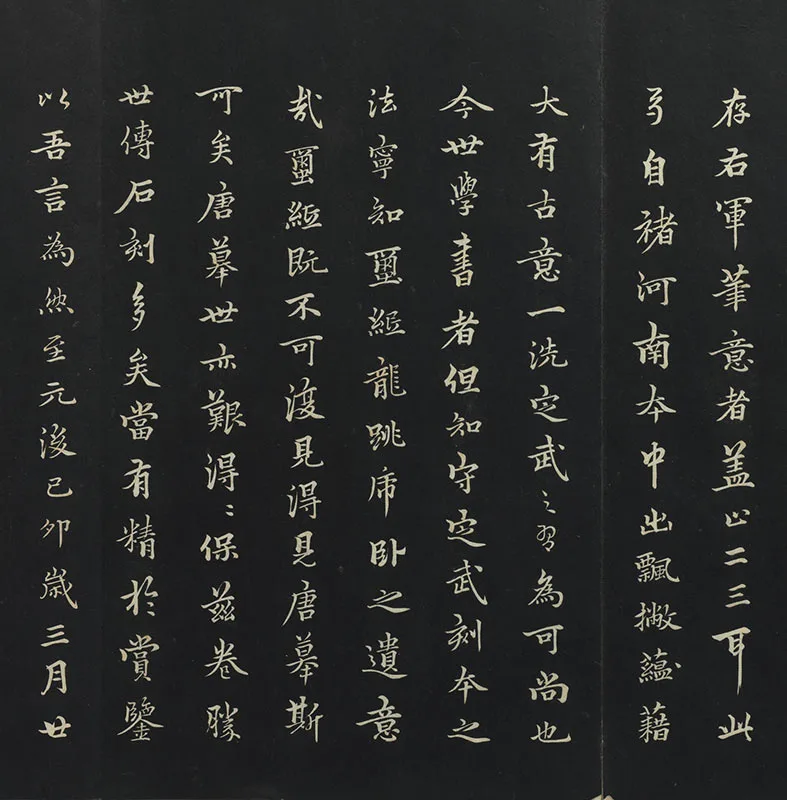 存右軍筆意者蓋止二三耳此
弓自褚河南本中出飄撇蘊藉
大有古意一洗定武之習為可尚也
今世學書者但知守定武刻本之
法寧知璽紙龍跳虎臥之遺意
哉璽紙既不可復見得見唐摹斯
可矣唐摹世亦艱得得保茲卷勝
世傳石刻多矣當有精於賞鑒
以吾言為然至元後己卯歲三月廿